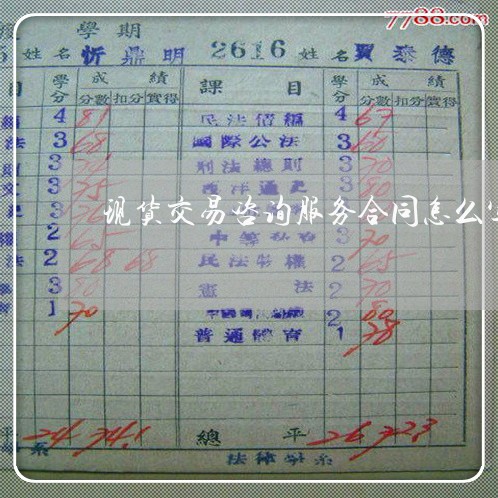 7788.com
學期
姓名 忻鼎明 2616 姓名 賈泰德
目 學分 成績 課目 學分 成績
分數 扣分 實得 分數 扣分 實得
4 81 民法債編 4 67
法 3 68 國際公法 3 60
3 刑法總則 3 70
3 75 西洋通史 3 80
现货交易咨询服务合同怎么
2 65 3 70
法 2 68 68 民法物權 2 65
3 80 憲法 2 70
1 70 2 80
普通體育 1 78
平 24 74.1 總平 26 72.3
系 法律學系